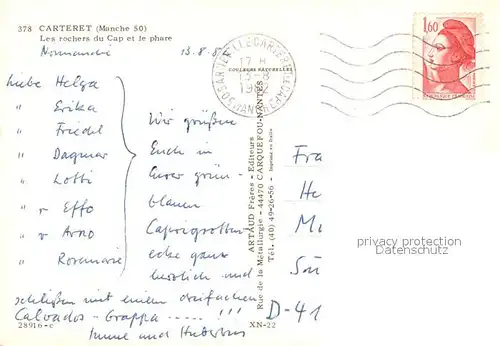 378 CARTERET (Manche 50)
Les rochers du Cap et le phare
Normandie 13.8.8
Liebe Helga
" Erika
" Friedel
" Dagmar
" Lotti
" r Effo
" r Arno
" Rosemarie
Wir grüßen
Euch in
Eurer grün-
blauen
Caprigrotten-
ecke ganz
herzlich und
schließen mit einem dreifachen
Calvados-Grappa ..... !!!
28916-c XN-22
COULEURS NATURELLES
ARTAUD Frères - Editeurs
Rue de la Métallurgie - 44470 CARQUEFOU-NANTES
Tél. (40) 49-26-56 - Imprimé en Italie
17 H
13-8
1982
50 BARNEVILLE CARTERET
MANCHE
1,60
Fra
He
Mi
D-41
privacy protection
Datenschutz